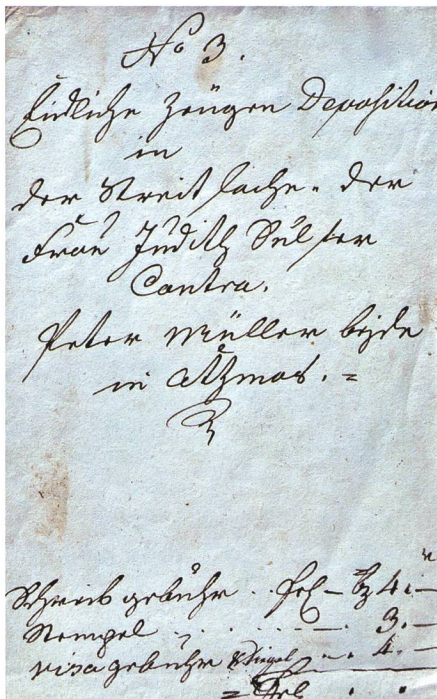 No 3.
Eidliche Zeügen Deposition
in
der Streitsache. der
Frau Judith Sulser
Contra.
Peter Müller beyde
in Atzmos. =
Schreibgebühr . frl – bz 4. –
Stempel . . . . . – . 3. –
visagebühr & Siegel – . 4. –